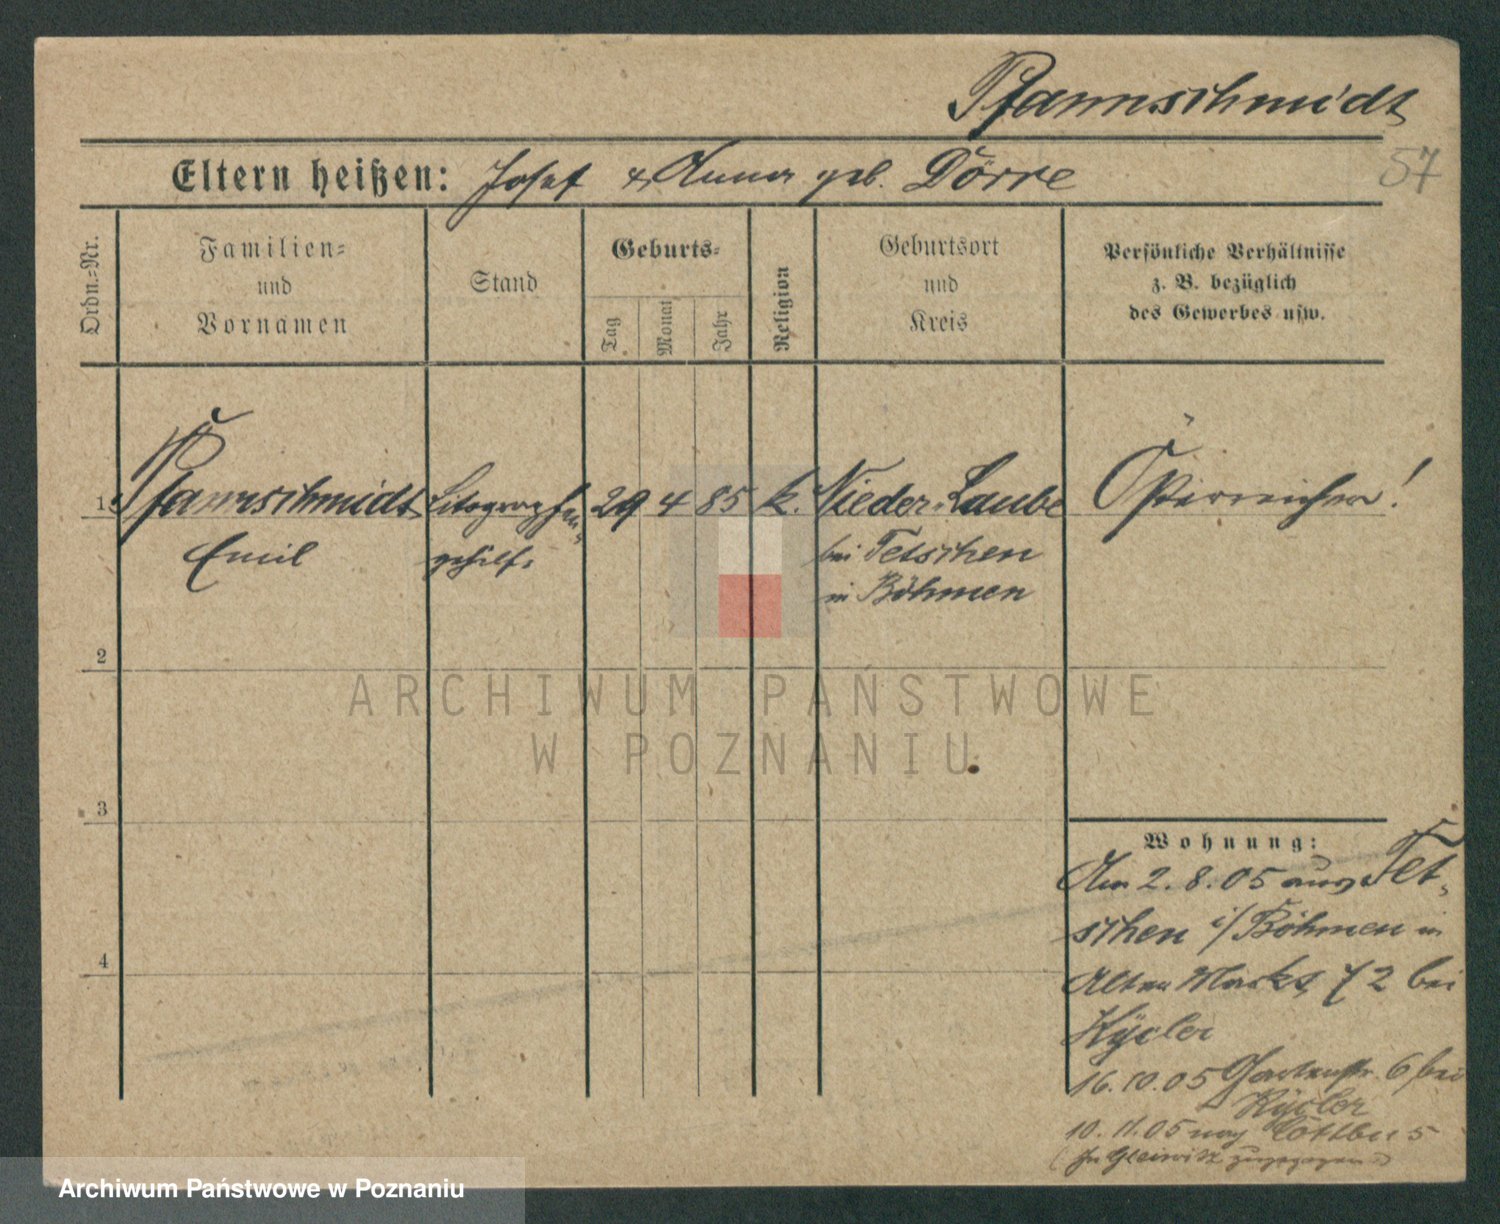 Pfannschmidt
57
Eltern heißen: Josef & Anna geb. Dörre
Ordn.=Nr.
Familien=
und
Vornamen
Stand
Geburts=
Tag
Monat
Jahr
Religion
Geburtsort
und
Kreis
Persönliche Verhältnisse
z. B. bezüglich
des Gewerbes usw.
1 Pfannschmidt Litograyhen= 29 4 85 k. Nieder-Laube Österreicher!
Emil gehilfe bei Tetschen
in Böhmen
2
3
4
Wohnung:
Am 2.8.05 aus Tet-
schen i/ Böhmen in
Alten Markt 72 bei
Kycler
16.10.05 Gartenstr. 6 bei
Kycler
10.11.05 nach Cottbus
(In Gleiwitz zugezogen)
ARCHIWUM PAŃSTWOWE
W POZNANIU
Archiwum Państwowe w Poznaniu